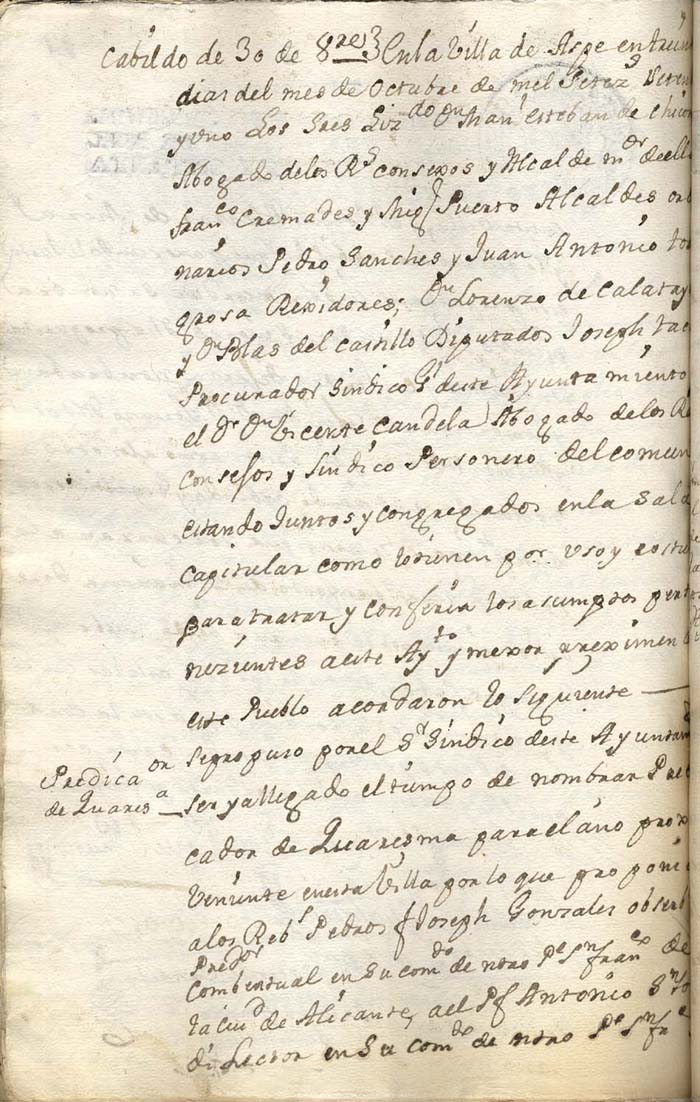 Cabildo de 30 de 8re3 En la Villa de Aspe en treinta
dias del mes de Octubre de mil Setezs Seten
y uno Los Sres Lizdo Dn Man Esteban de Chico
Abogado de los Rs consexos y Alcalde mor de ella
Franco Cremades y Migl Puerto Alcaldes ordi
narios Pedro Sanches y Juan Antonio tor
grosa Rexidores; Dn Lorenzo de Calatay
y Dn Blas del Castillo Diputados Joseph
Procurador Sindico Gl deste Ayuntamiento
el Dr Dn Vicente Candela Abogado de los R
consejos y Sindico Personero del comun
estando Juntos y congregados en la Sala
capitular como lo tienen por uso y costu
para tratar y conferir los asumptos perte
nezientes a este Ayto y mexor reximen
este Pueblo acordaron lo siguiente —
Predica on
de Quaresa
se propuso por el Sr Sindico deste Ayuntam
ser ya llegado el tiempo de nombrar Pre
cador de Quaresma para el año prox
veniente en esta Villa por lo que proponi
a los Rebs Pedros fr Joseph Gonzales obserb
Predor
combentual en su comto de ntro Pe Sn Franco de
la ciud de Alicante, ael Pf Antonio
di Lector en su comto de ntro Pe Sn Fr